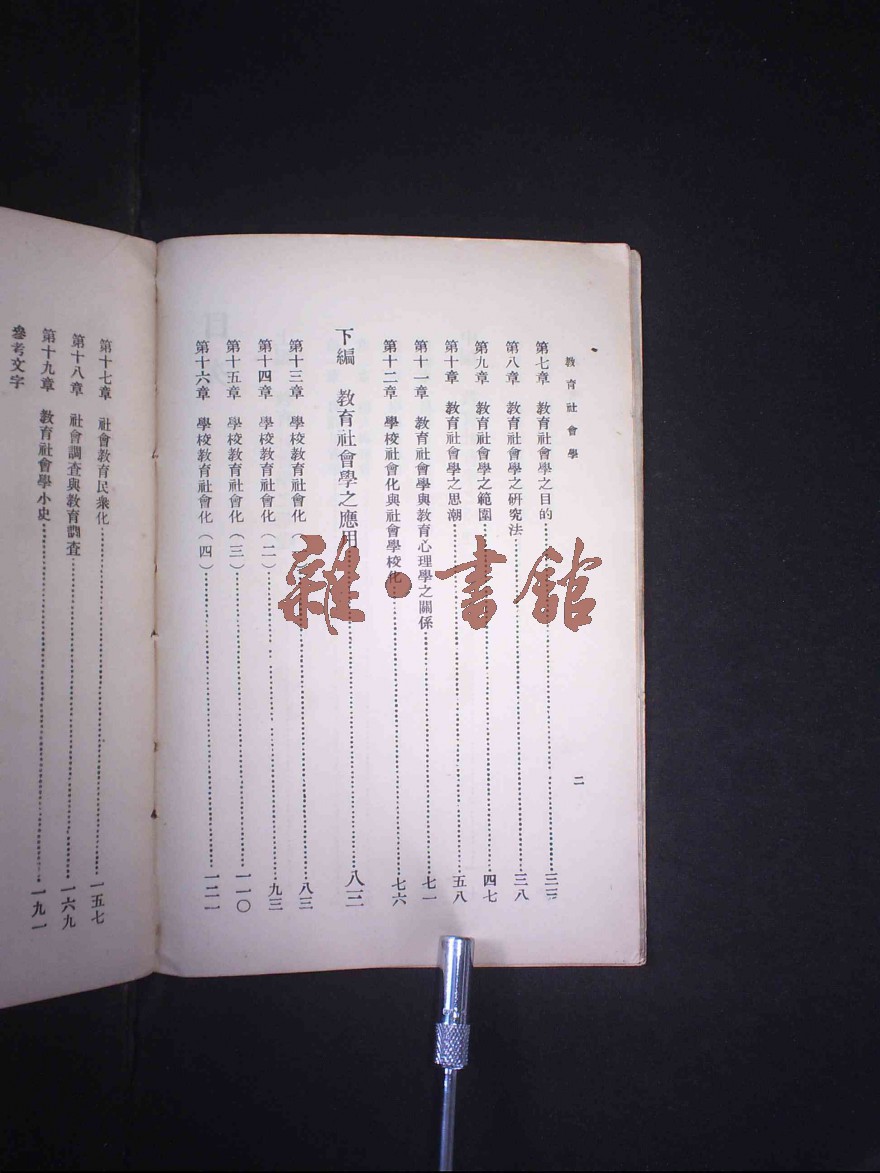 教育社會學
二
第七章 教育社會學之目的……三三
第八章 教育社會學之研究法……三八
第九章 教育社會學之範圍……四七
第十章 教育社會學之思潮……五八
第十一章 教育社會學與教育心理學之關係……七一
第十二章 學校社會化與社會學校化……七六
下編 教育社會學之應用……八三
第十三章 學校教育社會化……八三
第十四章 學校教育社會化(二)……九三
第十五章 學校教育社會化(三)……一一〇
第十六章 學校教育社會化(四)……一二一
第十七章 社會教育民衆化……一五七
第十八章 社會調查與教育調查……一六九
第十九章 教育社會學小史……一九一
參考文字
雜·書館